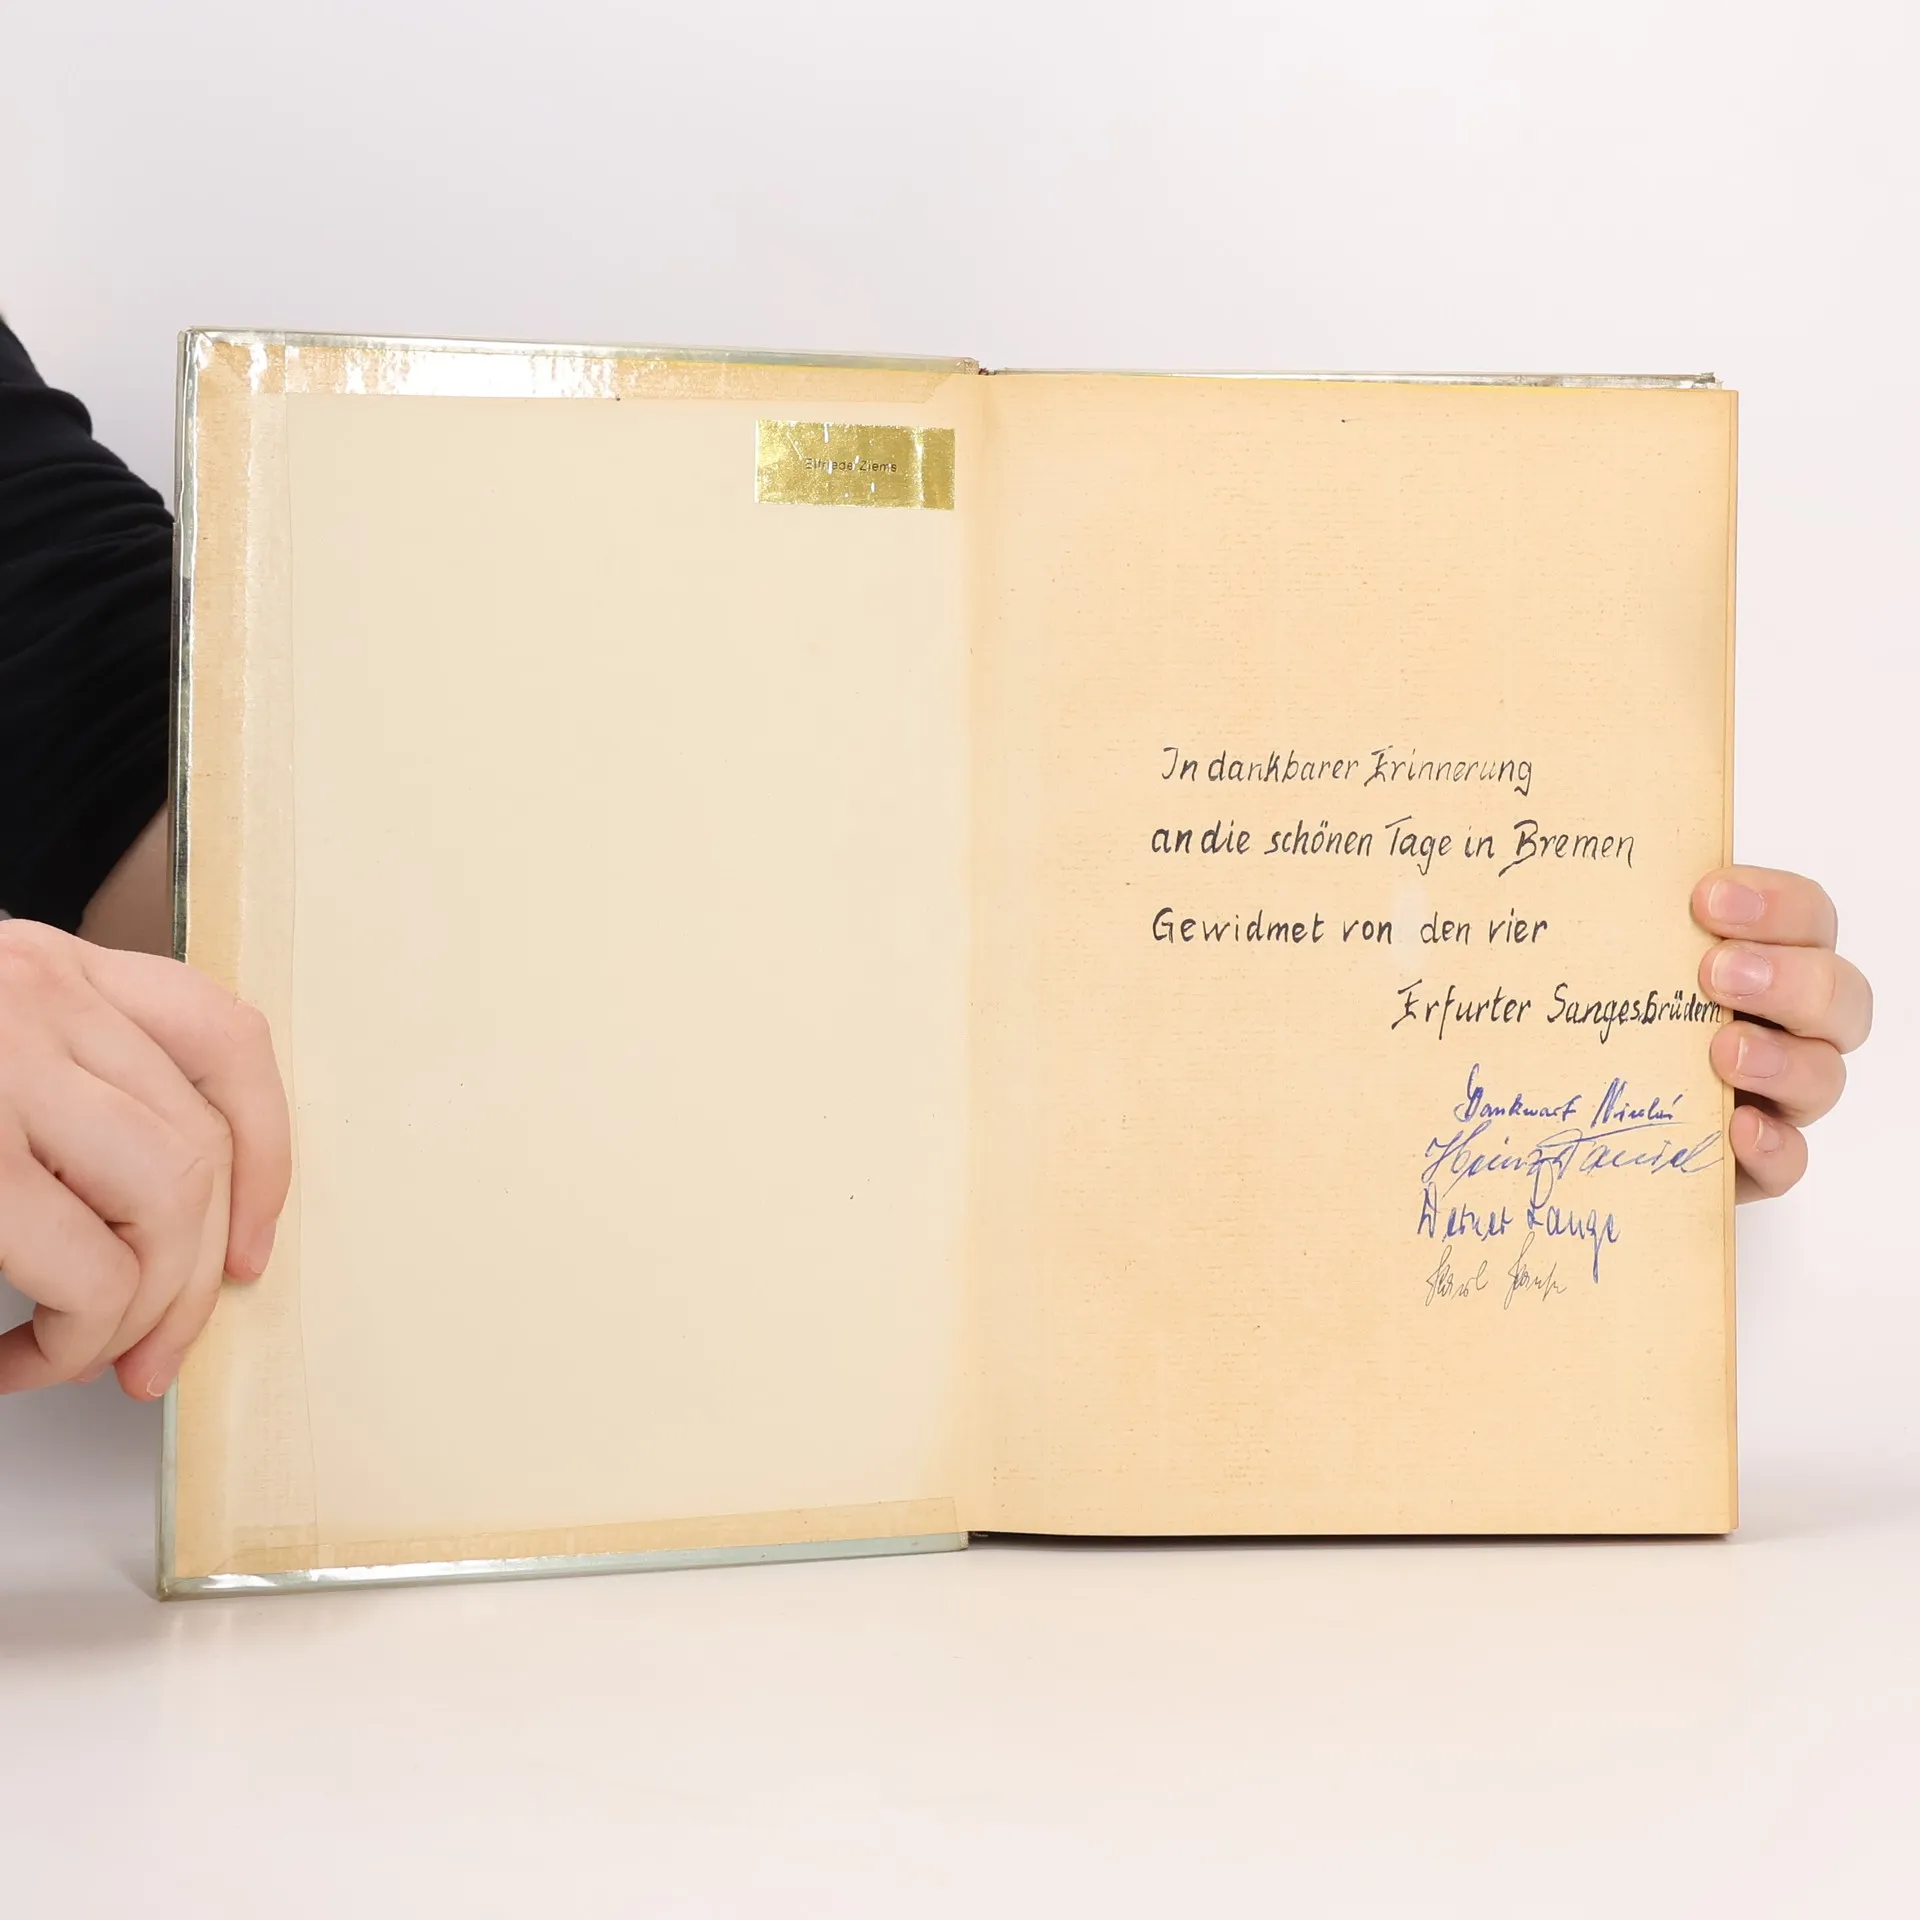 Elfriede Ziems
In dankbarer Erinnerung
an die schönen Tage in Bremen
Gewidmet von den vier
Erfurter Sangesbrüdern
Dankwart Nicolai
Heinz Daniel
Werner Lange